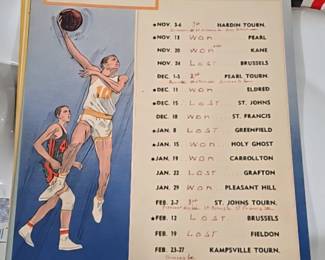 ★ NOV. 3-6 HARDIN TOURN.
★ NOV. 18 WON PEARL
NOV. 20 WON KANE
NOV. 24 LOST BRUSSELS
DEC. 1-5 PEARL TOURN.
★ DEC. 11 WON ELDRED
★ DEC. 15 LOST ST. JOHNS
DEC. 18 WON ST. FRANCIS
★ JAN. 8 LOST GREENFIELD
★ JAN. 15 WON HOLY GHOST
★ JAN. 19 WON CARROLLTON
JAN. 22 LOST GRAFTON
JAN. 29 WON PLEASANT HILL
FEB. 2-7 ST. JOHNS TOURN.
★ FEB. 12 LOST BRUSSELS
FEB. 19 LOST FIELDON
FEB. 23-27 KAMPSVILLE TOURN.